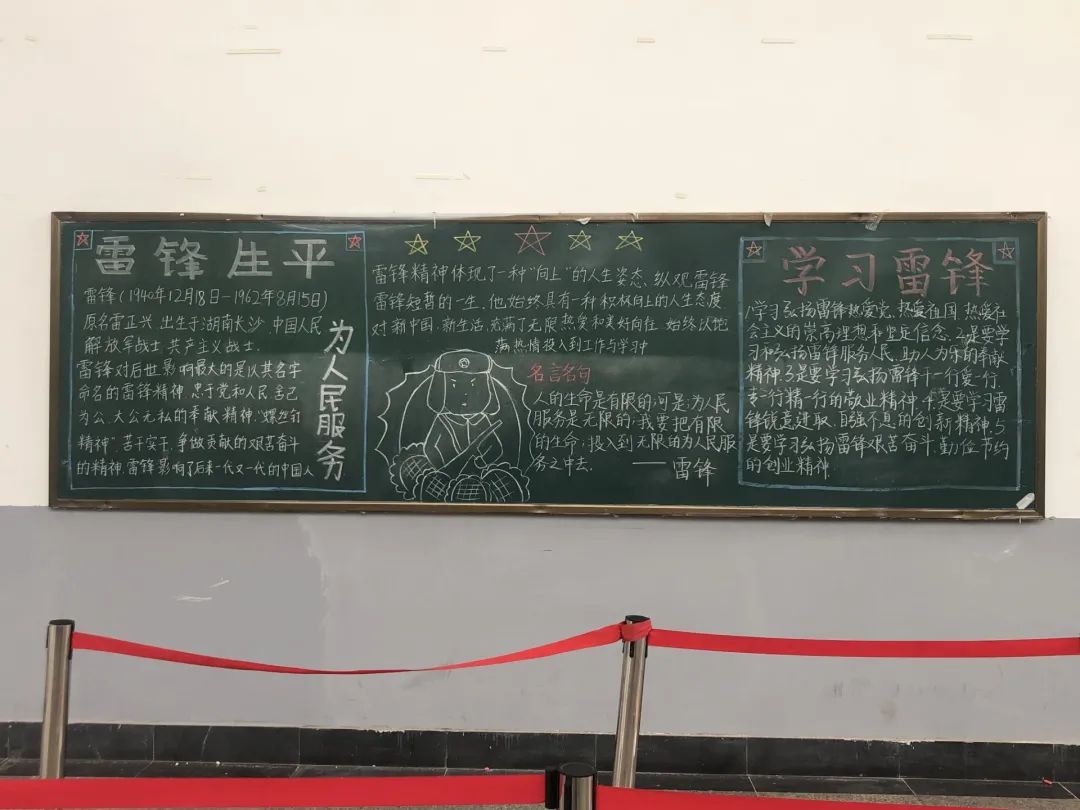 雷锋生平
雷锋(1940年12月18日-1962年8月15日)
原名雷正兴.出生于湖南长沙.中国人民
解放军战士.共产主义战士.
雷锋对后世影响最大的是以其名字
命名的雷锋精神.忠于党和人民.舍己
为公.大公无私的奉献精神."螺丝钉
精神".苦干实干,争做贡献的艰苦奋斗
的精神.雷锋影响了后来一代又一代的中国人
为人民服务
雷锋精神体现了一种"向上"的人生姿态.纵观雷锋
雷锋短暂的一生.他始终具有一种积极向上的人生态度
对新中国.新生活.充满了无限热爱和美好向往.始终以饱
满热情投入到工作与学习中
名言名句
人的生命是有限的,可是,为人民
服务是无限的,我要把有限
的生命,投入到无限的为人民服
务之中去.
——雷锋
学习雷锋
1.学习弘扬雷锋热爱党.热爱祖国.热爱社
会主义的崇高理想和坚定信念.2.是要学
习和弘扬雷锋服务人民.助人为乐的奉献
精神.3.是要学习弘扬雷锋干一行爱一行.
专一行精一行的敬业精神.4.是要学习雷
锋锐意进取.自强不息的创新精神.5
是要学习弘扬雷锋艰苦奋斗.勤俭节约
的创业精神.